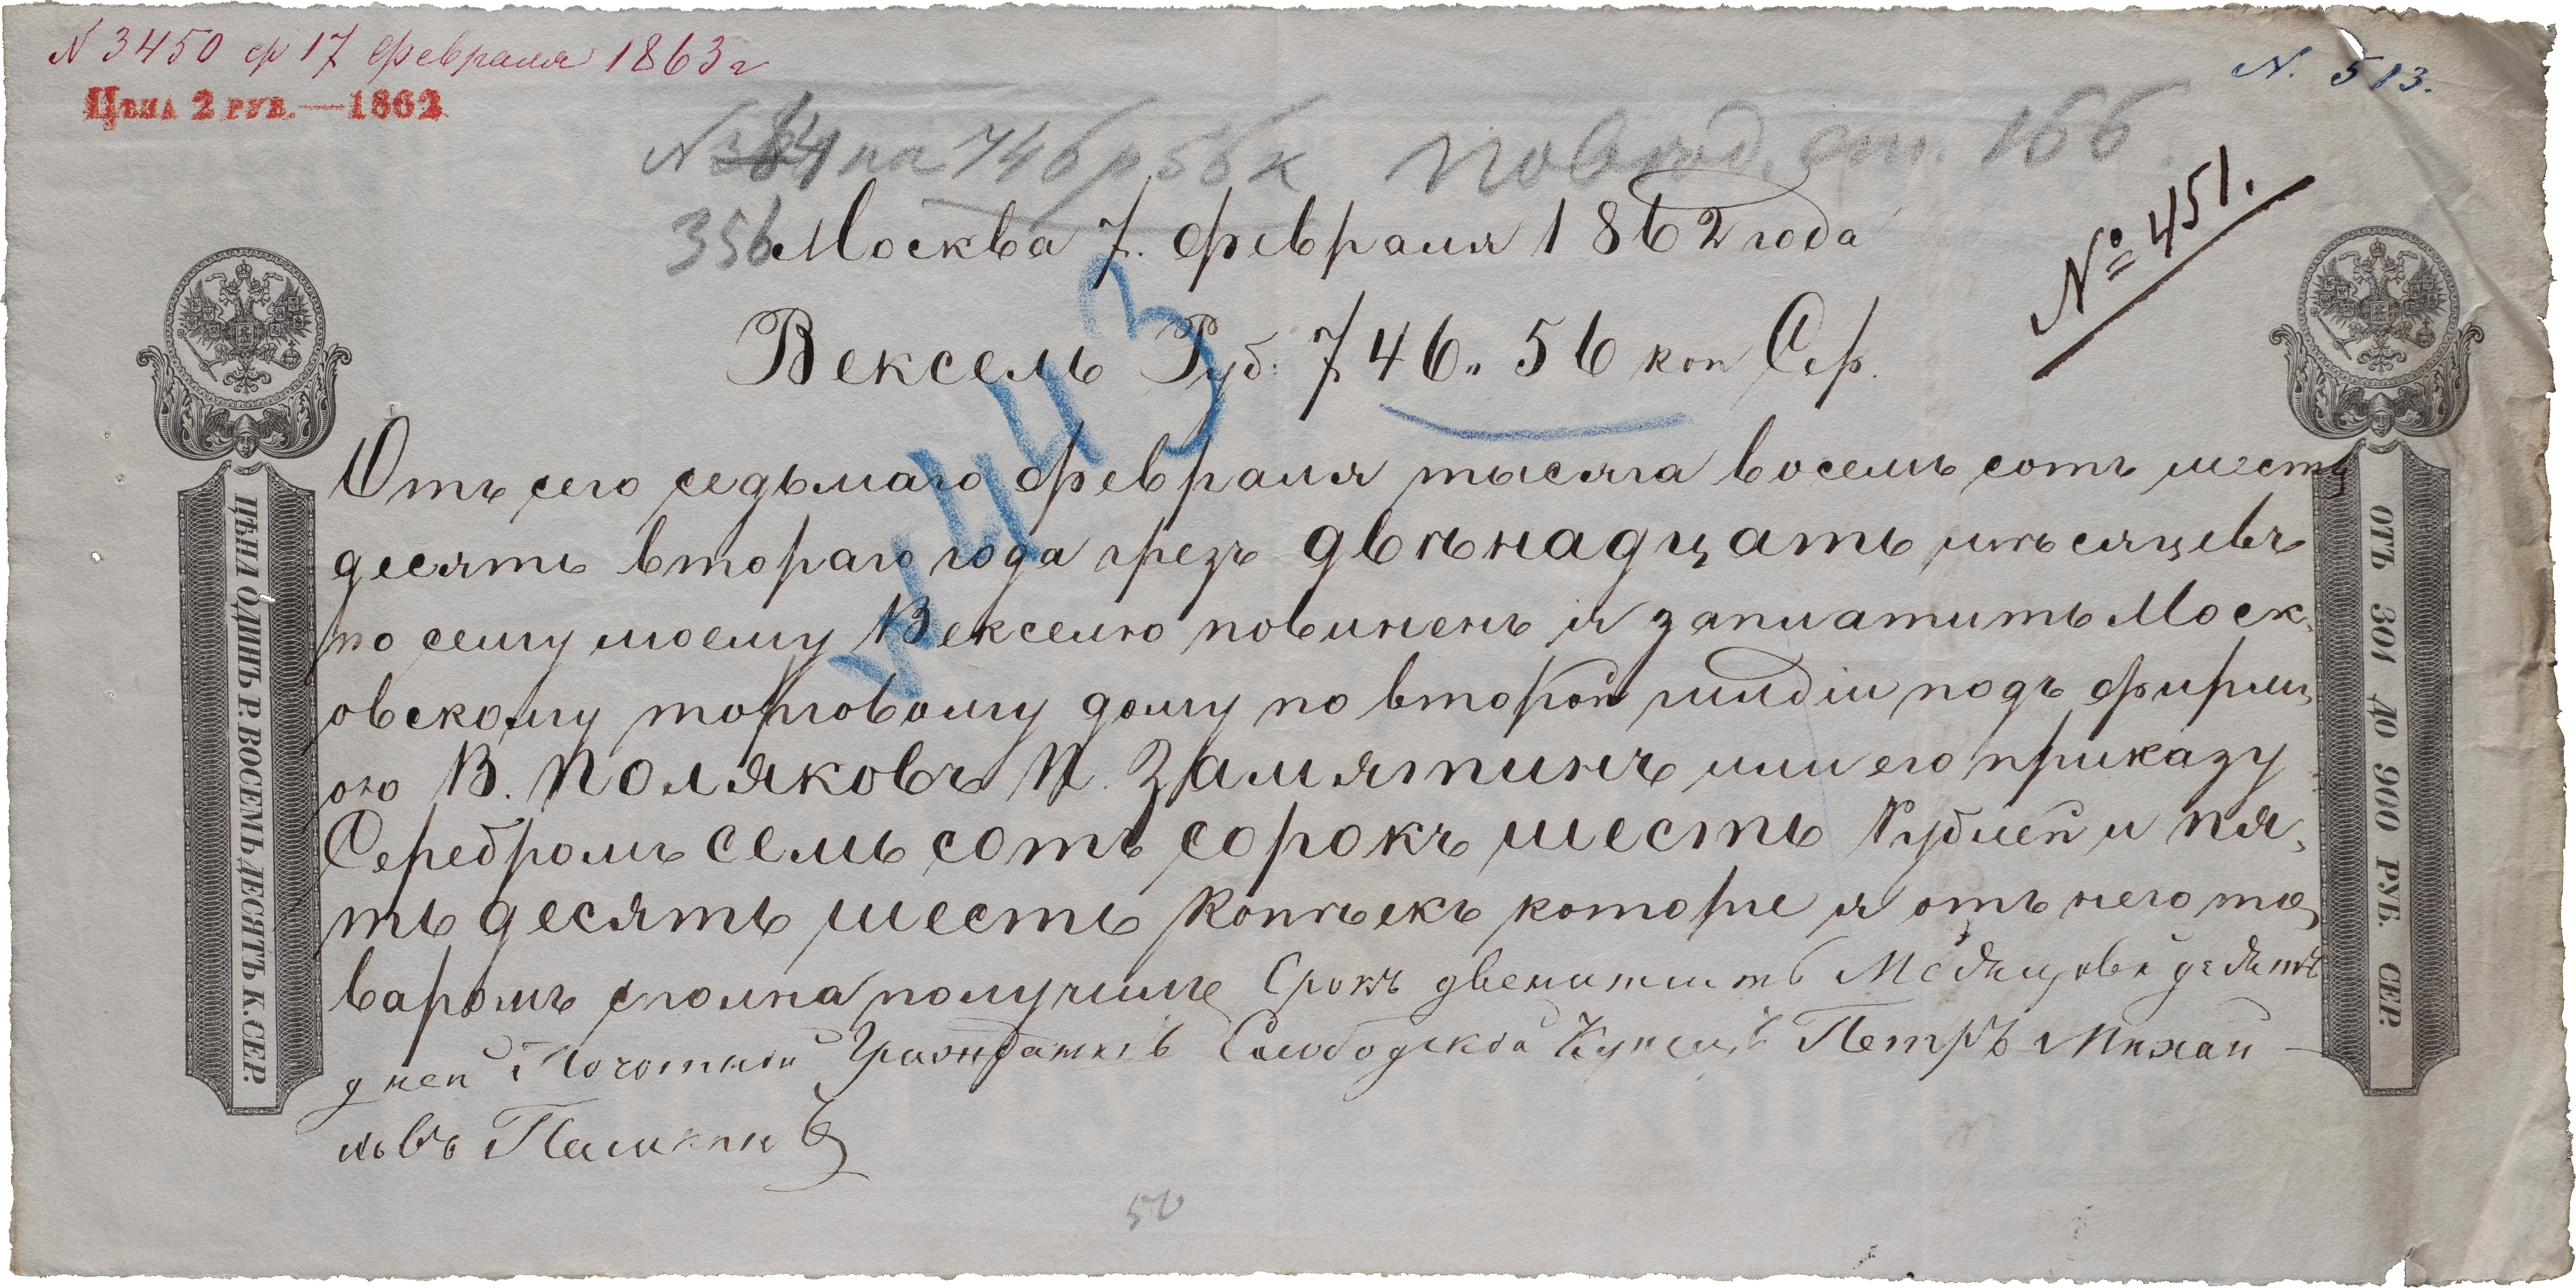 N 3450 ф 17 февраля 1863 г
N. 513.
Цѣна 2 руб.—1862
на 746 р 56 к
166
356
№ 451.
Москва 7. февраля 1862 года
Вексель Руб: 746„ 56 коп Сер.
N 443
Отъ сего седьмаго февраля тысяча восемь сотъ шесть
десять втораго года чрезъ двѣнадцать мѣсяцевъ
по сему моему Векселю повиненъ я заплатить Моск,
овскому торговому дому по второй гилдіи подъ фирм,
ою В. Поляковъ П. Замятинъ или его приказу
Серебромъ семь сотъ сорокъ шесть Рублей и пя,
ть десять шесть Копѣекъ которые я отъ него то,
варомъ сполна получилъ Срокъ
дней Почотный Слободской Купецъ Петръ Михай —
ловъ
50
ЦѢНА ОДИНЪ Р. ВОСЕМЬДЕСЯТЪ К. СЕР.
ОТЪ 301 ДО 900 РУБ. СЕР.